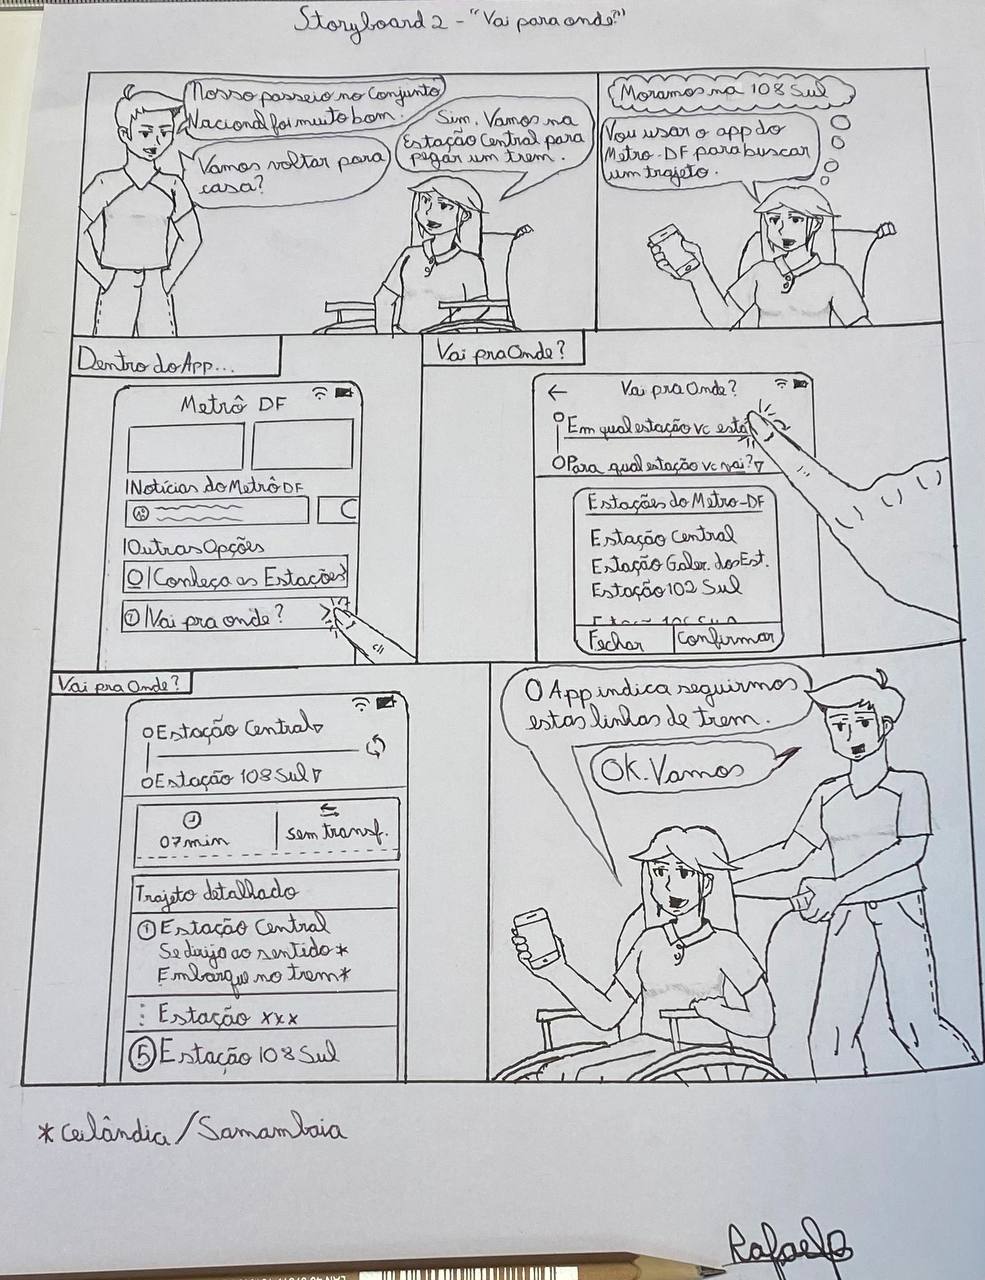 Storyboard 2 - "Vai para onde?"
Nosso passeio no Conjunto
Nacional foi muito bom.
Vamos voltar para
casa?
Sim. Vamos na
Estação Central para
pegar um trem.
Moramos na 108 Sul
Vou usar o app do
Metro-DF para buscar
um trajeto.
Dentro do App...
Metrô DF
Notícias do Metrô DF
Outras Opções
Conheça as Estações
Vai pra onde?
Vai pra Onde?
Vai pra Onde?
Em qual estação vc está
Para qual estação vc vai?
Estações do Metro-DF
Estação Central
Estação Galer. dos Est.
Estação 102 Sul
Fechar
Confirmar
Vai pra Onde?
Estação Central
Estação 108 Sul
07 min
sem transf.
Trajeto detalhado
1 Estação Central
Se dirija ao sentido *
Embarque no trem *
Estação xxx
5 Estação 108 Sul
O App indica seguirmos
estas linhas de trem.
OK. Vamos
* Ceilândia / Samambaia